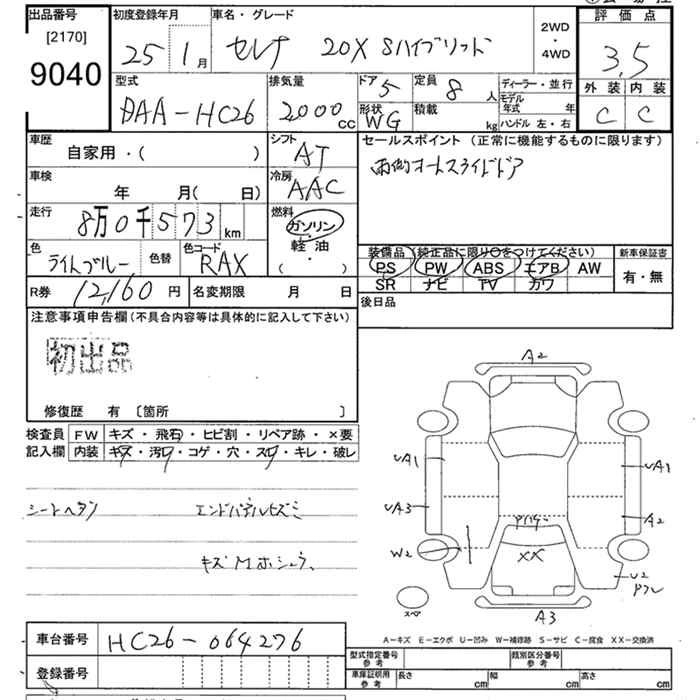 出品番号
[2170]
9040
初度登録年月
25 1月
車名・グレード
セレナ 20X Sハイブリッド
2WD
・
4WD
評価点
3.5
外装 内装
C C
型式
DAA-HC26
排気量
2000cc
ドア 5
定員 8人
形状 WG
積載 kg
ディーラー・並行
モデル年式 年
ハンドル 左・右
車歴
自家用・( )
シフト
AT
セールスポイント(正常に機能するものに限ります)
両側オートスライドドア
車検
年 月( 日)
冷房
AAC
走行
8万0千573km
燃料
ガソリン
軽油
( ・ )
色
ライトブルー
色替
色コード
RAX
装備品(純正品に限り○をつけてください)
PS PW ABS エアB AW
SR ナビ TV カワ
新車保証書
有・無
R券 12,160円
名変期限 月 日
後日品
注意事項申告欄(不具合内容等は具体的に記入して下さい)
初出品
修復歴 有 〔箇所 〕
検査員 FW キズ・飛石・ヒビ割・リペア跡・×要
記入欄 内装 キズ・汚れ・コゲ・穴・スレ・キレ・破レ
シートヘタリ
エンドパネルヒズミ
A2
UA1
UA1
UA3
A2
W2
XX
U2
スペア
A3
A-キズ E-エクボ U-凹み W-補修跡 S-サビ C-腐食 XX-交換済
車台番号 HC26-064276
登録番号
型式指定番号
参考
類別区分番号
参考
車庫証明用
参考
長さ cm
幅 cm
高さ cm